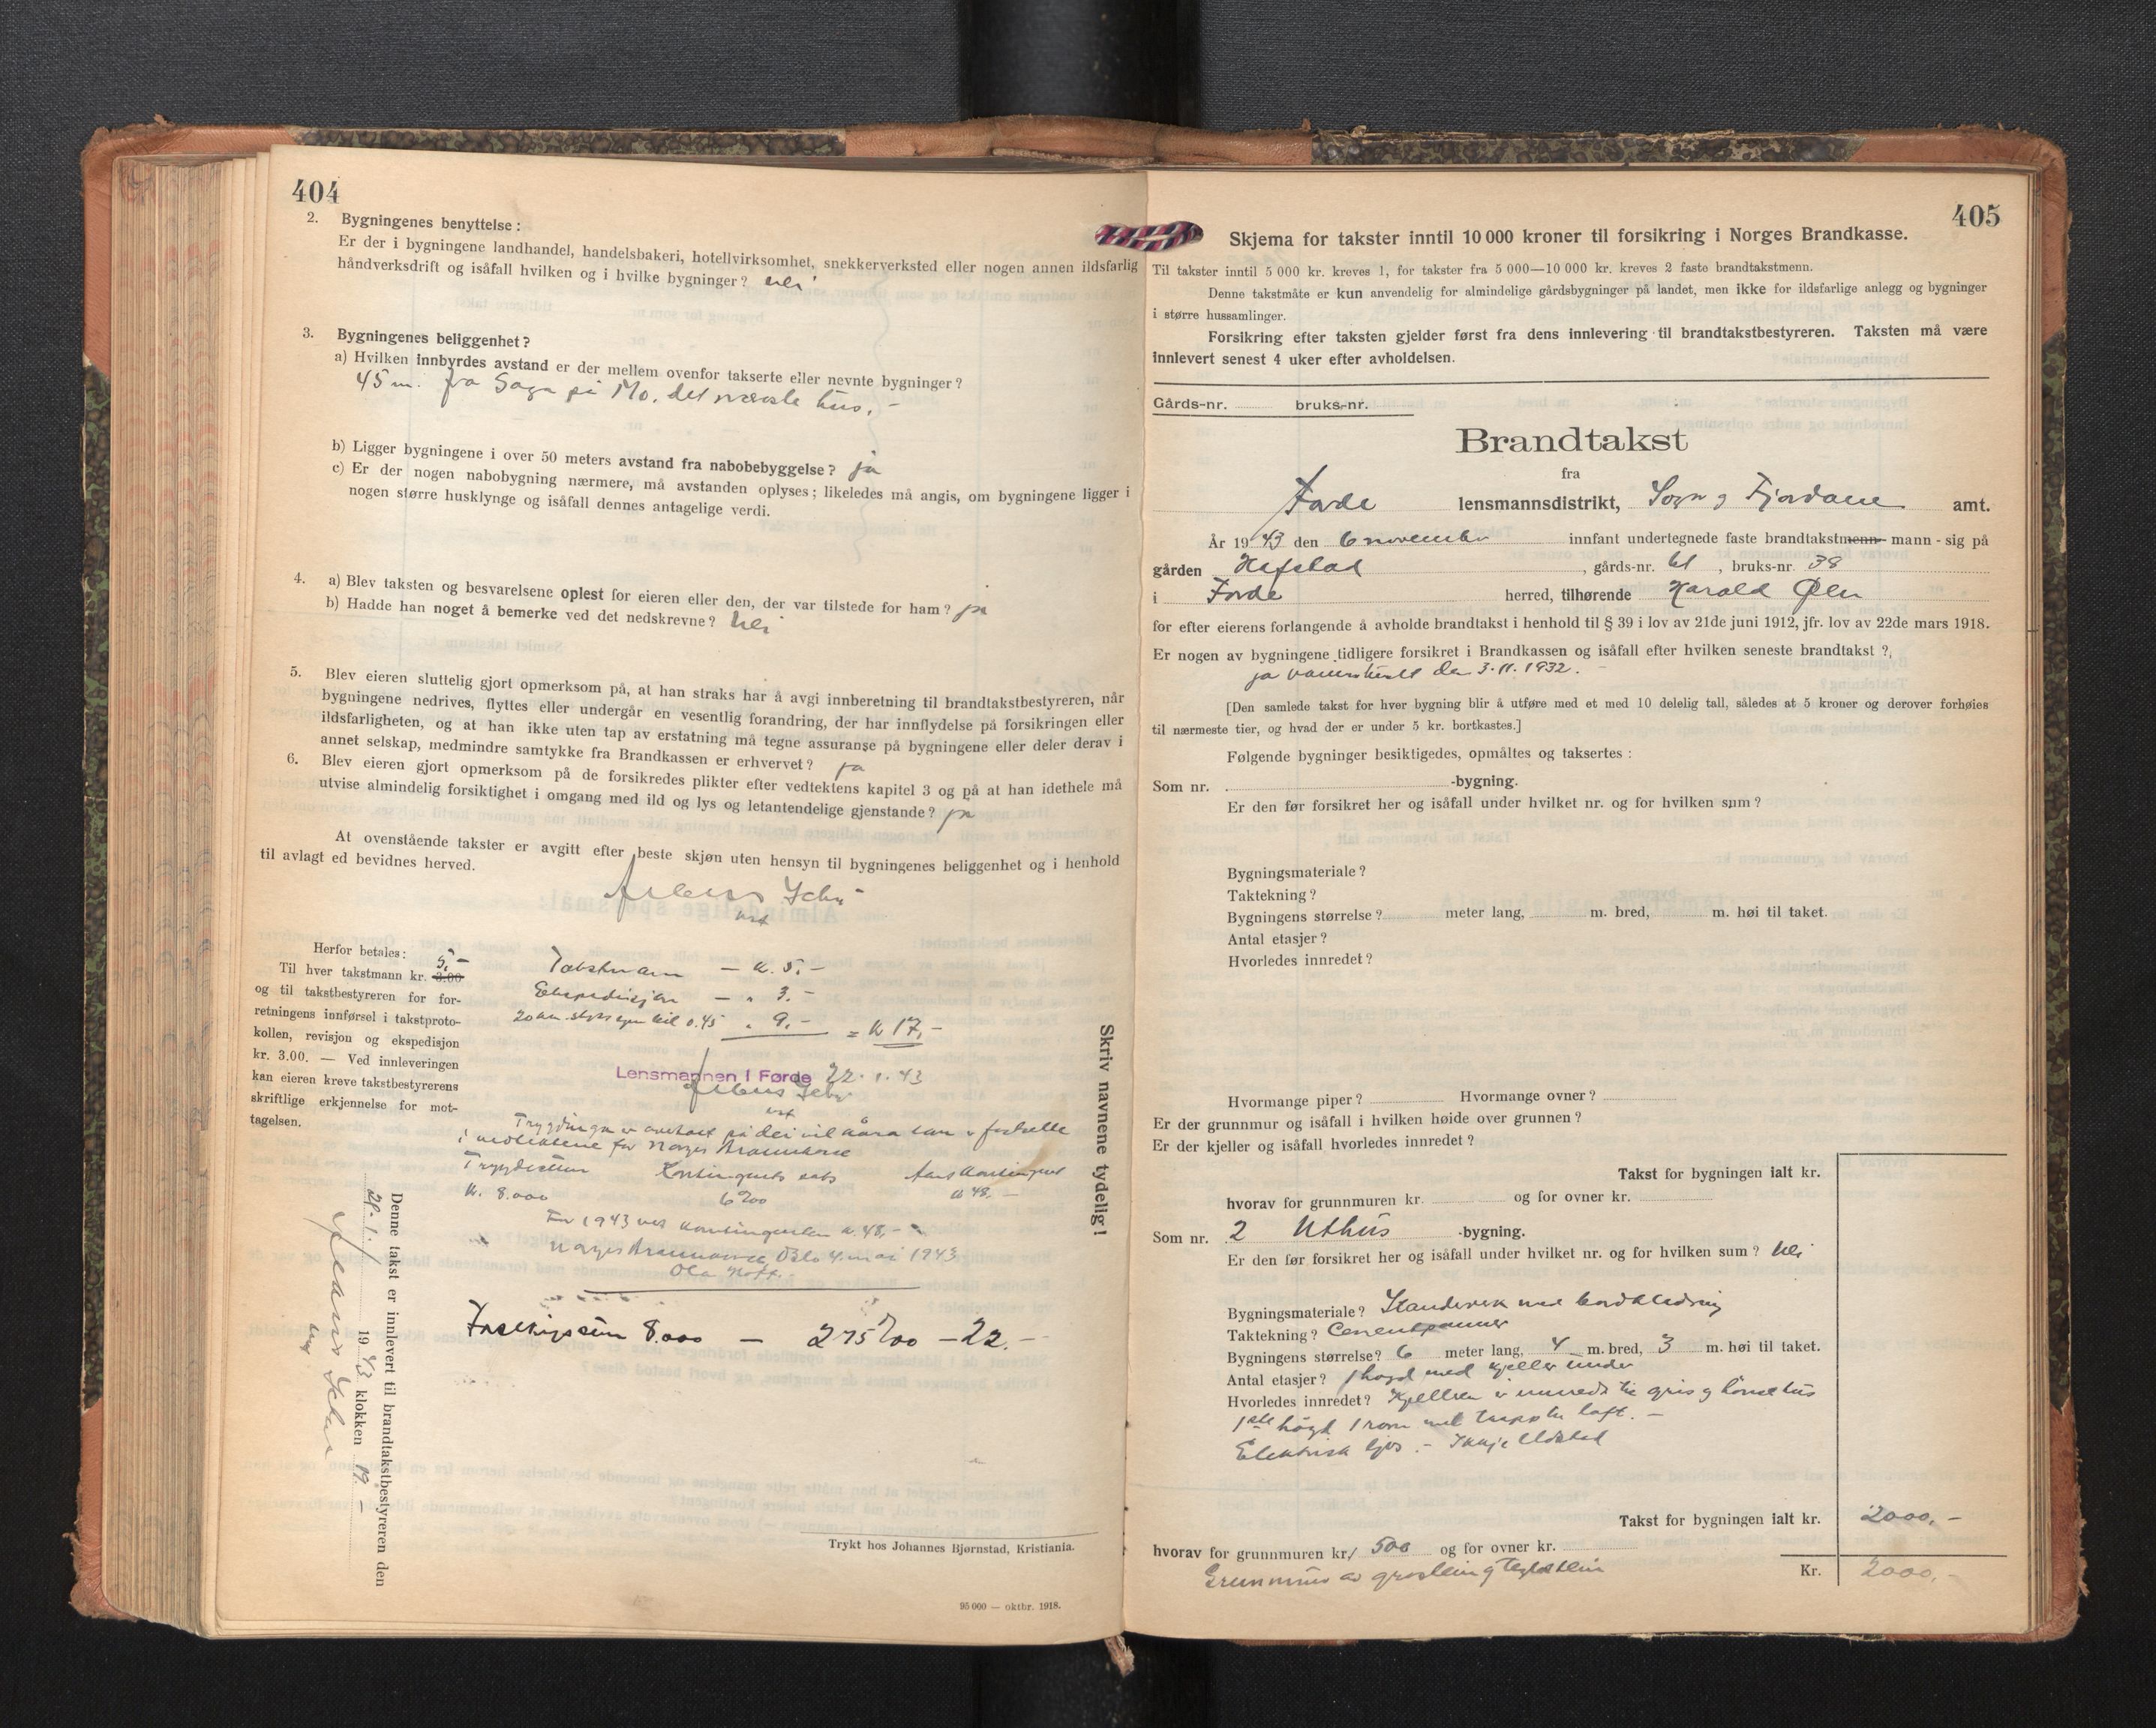 404
2. Bygningenes benyttelse:
Er der i bygningene landhandel, handelsbakeri, hotellvirksomhet, snekkerverksted eller nogen annen ildsfarlig
håndverksdrift og isåfall hvilken og i hvilke bygninger? nei
3. Bygningenes beliggenhet?
a) Hvilken innbyrdes avstand er der mellem ovenfor takserte eller nevnte bygninger?
45 m. fra Saga på Mo, det næste hus. -
b) Ligger bygningene i over 50 meters avstand fra nabobebyggelse? ja
c) Er der nogen nabobygning nærmere, må avstanden oplyses; likeledes må angis, om bygningene ligger i
nogen større husklynge og isåfall dennes antagelige verdi.
4. a) Blev taksten og besvarelsene oplest for eieren eller den, der var tilstede for ham? ja
b) Hadde han noget å bemerke ved det nedskrevne? nei
5. Blev eieren sluttelig gjort opmerksom på, at han straks har å avgi innberetning til brandtakstbestyreren, når
bygningene nedrives, flyttes eller undergår en vesentlig forandring, der har innflydelse på forsikringen eller
ildsfarligheten, og at han ikke uten tap av erstatning må tegne assuranse på bygningene eller deler derav i
annet selskap, medmindre samtykke fra Brandkassen er erhvervet? ja
6. Blev eieren gjort opmerksom på de forsikredes plikter efter vedtektens kapitel 3 og på at han idethele må
utvise almindelig forsiktighet i omgang med ild og lys og letantendelige gjenstande? ja
At ovenstående takster er avgitt efter beste skjøn uten hensyn til bygningenes beliggenhet og i henhold
til avlagt ed bevidnes herved.
Herfor betales:
5,-
Til hver takstmann kr. 3.00
og til takstbestyreren for for-
retningens innførsel i takstproto-
kollen, revisjon og ekspedisjon
kr. 3.00. — Ved innleveringen
kan eieren kreve takstbestyrerens
skriftlige erkjennelse for mot-
tagelsen.
Takstmann — kr. 5.-
Ekspedisjon — " 3.-
20 km. skyss egen bil 0.45 " 9,- = kr 17,-
Lensmannen i Førde 22.1.43
i vedtektene for Norges Brannkasse
Trygdesum Kontingents sats Aarskontingent
kr. 8.000 6 ‰ kr 48,-
For 1943 vert kontingenten kr. 48,-
Norges Brannkasse, Oslo 4. mai 1943
8.000 — 275 ‰ - 22.-
Skriv navnene tydelig!
Denne takst er innlevert til brandtakstbestyreren den
22.1. 1943 klokken 19 -
Trykt hos Johannes Bjørnstad, Kristiania.
95 000 — oktbr. 1918.
405
Skjema for takster inntil 10 000 kroner til forsikring i Norges Brandkasse.
Til takster inntil 5 000 kr. kreves 1, for takster fra 5 000—10 000 kr. kreves 2 faste brandtakstmenn.
Denne takstmåte er kun anvendelig for almindelige gårdsbygninger på landet, men ikke for ildsfarlige anlegg og bygninger
i større hussamlinger.
Forsikring efter taksten gjelder først fra dens innlevering til brandtakstbestyreren. Taksten må være
innlevert senest 4 uker efter avholdelsen.
Gårds-nr. bruks-nr.
Brandtakst
fra
Førde lensmannsdistrikt, Sogn og Fjordane amt.
År 1943 den 6 november innfant undertegnede faste brandtakstmenn - mann - sig på
gården Hafstad, gårds-nr. 61, bruks-nr. 38
i Førde herred, tilhørende Harald Øen
for efter eierens forlangende å avholde brandtakst i henhold til § 39 i lov av 21de juni 1912, jfr. lov av 22de mars 1918.
Er nogen av bygningene tidligere forsikret i Brandkassen og isåfall efter hvilken seneste brandtakst?
ja våningshuset den 3.11.1932. -
[Den samlede takst for hver bygning blir å utføre med et med 10 delelig tall, således at 5 kroner og derover forhøies
til nærmeste tier, og hvad der er under 5 kr. bortkastes.]
Følgende bygninger besiktigedes, opmåltes og taksertes:
Som nr. -bygning.
Er den før forsikret her og isåfall under hvilket nr. og for hvilken sum?
Bygningsmateriale?
Taktekning?
Bygningens størrelse? meter lang, m. bred, m. høi til taket.
Antal etasjer?
Hvorledes innredet?
Hvormange piper? Hvormange ovner?
Er der grunnmur og isåfall i hvilken høide over grunnen?
Er der kjeller og isåfall hvorledes innredet?
Takst for bygningen ialt kr.
hvorav for grunnmuren kr. og for ovner kr.
Som nr. 2 Uthus -bygning.
Er den før forsikret her og isåfall under hvilket nr. og for hvilken sum? Nei
Bygningsmateriale? Standerverk med bordkledning
Taktekning? Cementpanner
Bygningens størrelse? 6 meter lang, 4 m. bred, 3 m. høi til taket.
Antal etasjer? 1 høgd med kjeller under
Hvorledes innredet? Kjelleren er innreda til gris og hønsehus
1ste høgd 1 rom med trapp til loft. -
Elektrisk ljos. - Ikkje eldsted
Takst for bygningen ialt kr. 2000,-
hvorav for grunnmuren kr. 500 og for ovner kr.
Grunnmur av gråstein og teglstein
Kr. 2000,-